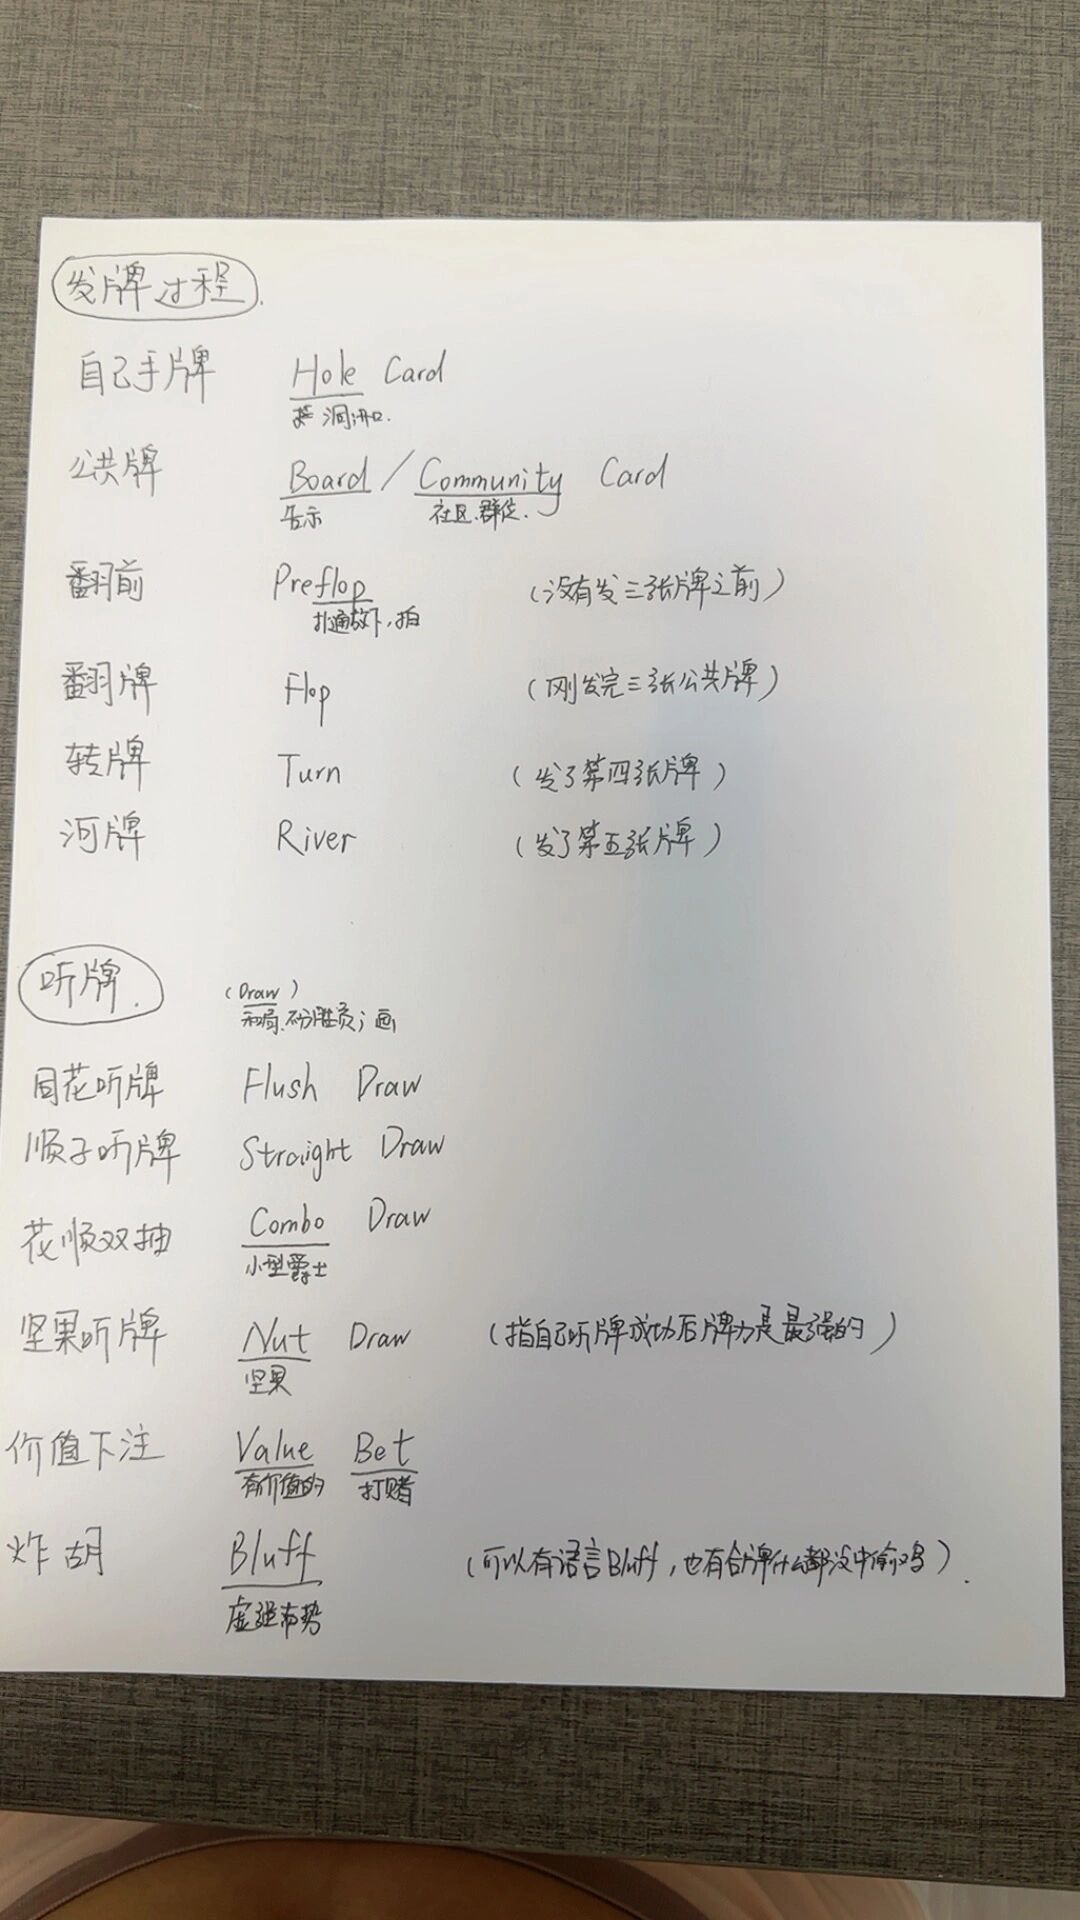 发牌过程.
自己手牌 Hole Card
洞;洞口.
公共牌 Board / Community Card
告示 社区.群众.
翻前 Preflop (没有发三张牌之前)
扑通放下,拍
翻牌 Flop (刚发完三张公共牌)
转牌 Turn (发了第四张牌)
河牌 River (发了第五张牌)
听牌.
(Draw)
和局.不分胜负;画
同花听牌 Flush Draw
顺子听牌 Straight Draw
花顺双抽 Combo Draw
小型爵士
坚果听牌 Nut Draw (指自己听牌成功后牌力是最强的)
坚果
价值下注 Value Bet
有价值的 打赌
炸胡 Bluff (可以有语言Bluff,也有合牌什么都没中偷鸡).
虚张声势